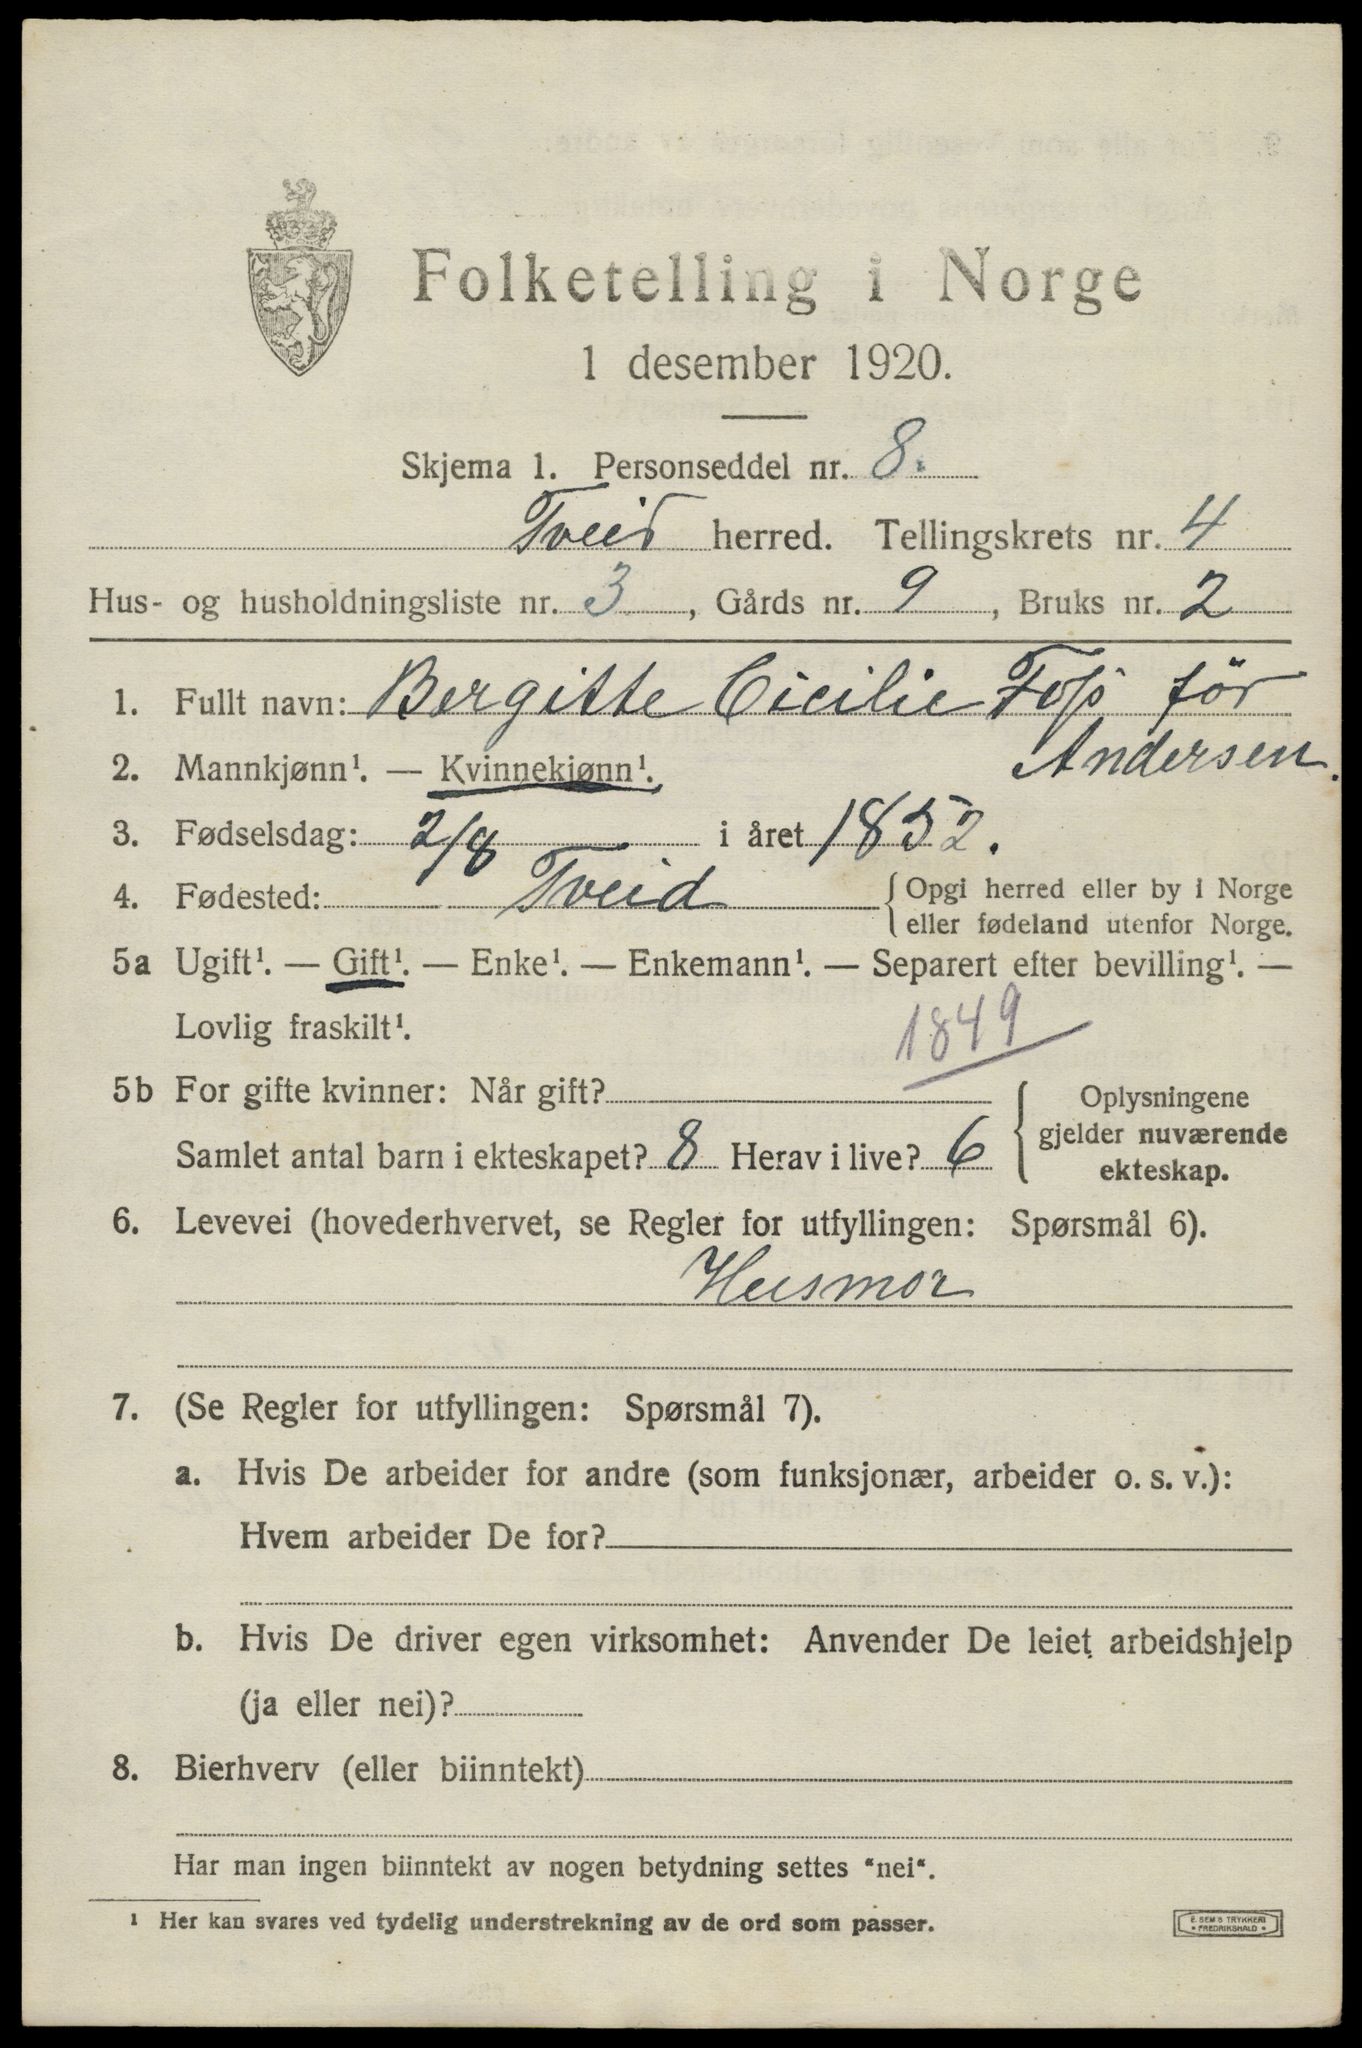 Folketelling i Norge
1 desember 1920.
Skjema 1. Personseddel nr. 8.
Tveid herred. Tellingskrets nr. 4
Hus- og husholdningsliste nr. 3, Gårds nr. 9, Bruks nr. 2
1. Fullt navn: Bergitte Cicilie Foss för
Andersen.
2. Mannkjønn¹. — Kvinnekjønn¹.
3. Fødselsdag: 2/8 i året 1852.
4. Fødested: Tveid {Opgi herred eller by i Norge
eller fødeland utenfor Norge.
5a Ugift¹. — Gift¹. — Enke¹. — Enkemann¹. — Separert efter bevilling¹. —
Lovlig fraskilt¹.
1849
5b For gifte kvinner: Når gift?
Samlet antal barn i ekteskapet? 8 Herav i live? 6
Oplysningene
gjelder nuværende
ekteskap.
6. Levevei (hovederhvervet, se Regler for utfyllingen: Spørsmål 6).
Husmor
7. (Se Regler for utfyllingen: Spørsmål 7).
a. Hvis De arbeider for andre (som funksjonær, arbeider o. s. v.):
Hvem arbeider De for?
b. Hvis De driver egen virksomhet: Anvender De leiet arbeidshjelp
(ja eller nei)?
8. Bierhverv (eller biinntekt)
Har man ingen biinntekt av nogen betydning settes "nei".
¹ Her kan svares ved tydelig understrekning av de ord som passer.
E. SEM'S TRYKKERI
• FREDRIKSHALD •